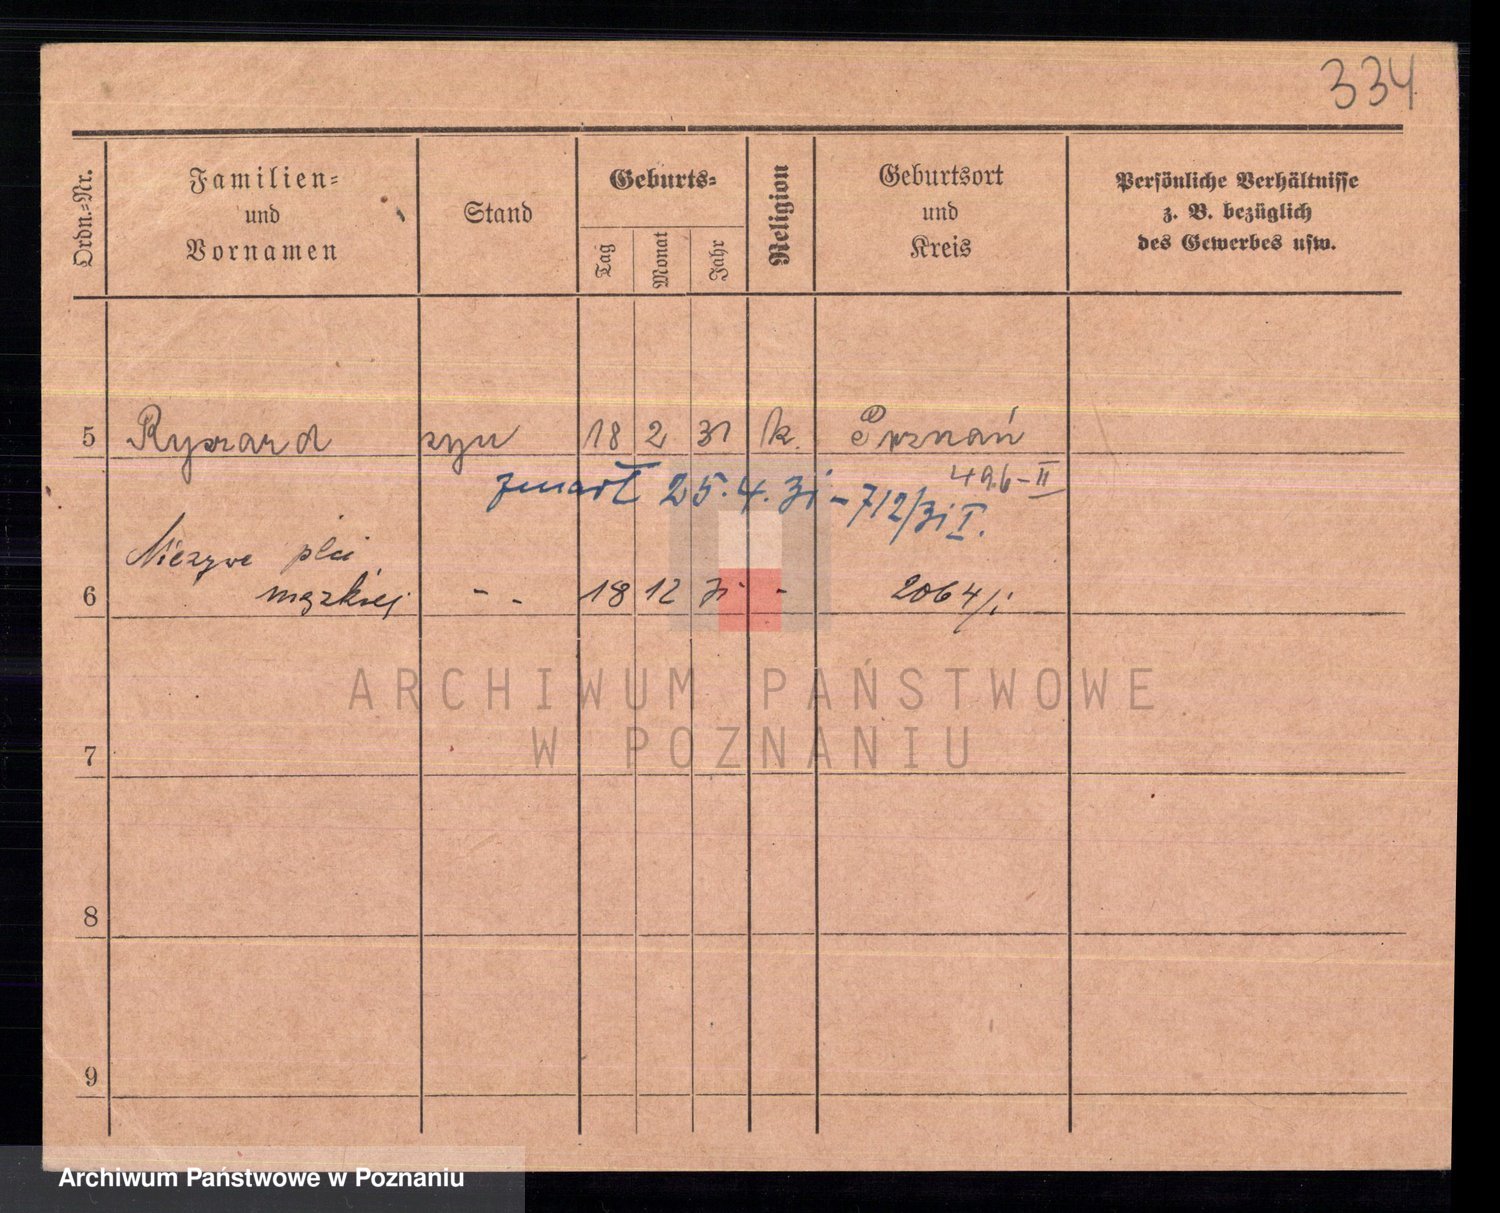 334
Ordn.=Nr.
Familien=
und
Vornamen
Stand
Geburts=
Tag
Monat
Jahr
Religion
Geburtsort
und
Kreis
Persönliche Verhältnisse
z. B. bezüglich
des Gewerbes usw.
5 Ryszard syn 18 2 31 k. Poznań
496-II
zmarł 25.4.31-712/31 I.
Nieżywe płci
6 męzkiej - - 18 12 31 - 2064/i
ARCHIWUM PAŃSTWOWE
W POZNANIU
7
8
9
Archiwum Państwowe w Poznaniu